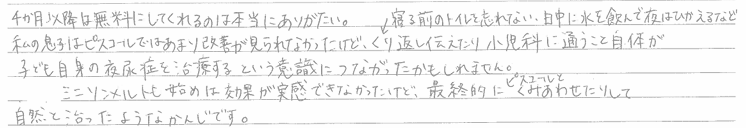 4か月以降は無料にしてくれるのは本当にありがたい。 寝る前のトイレを忘れない、日中に水を飲んで夜はひかえるなど
私の息子はピスコールではあまり改善が見られなかったけど、くり返し伝えたり 小児科に通うこと自体が
子ども自身の夜尿症を治療するという意識につながったかもしれません。
ミニリンメルトも始めは効果が実感できなかったけど、最終的にピスコールとくみあわせたりして
自然と治ったようなかんじです。